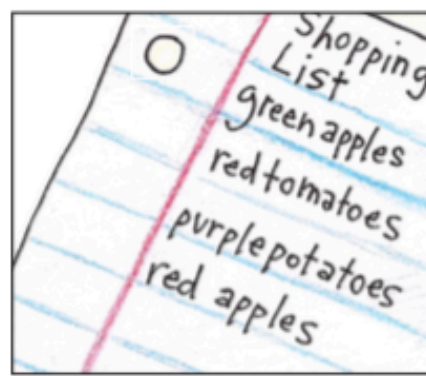 Shopping
List
green apples
red tomatoes
purple potatoes
red apples